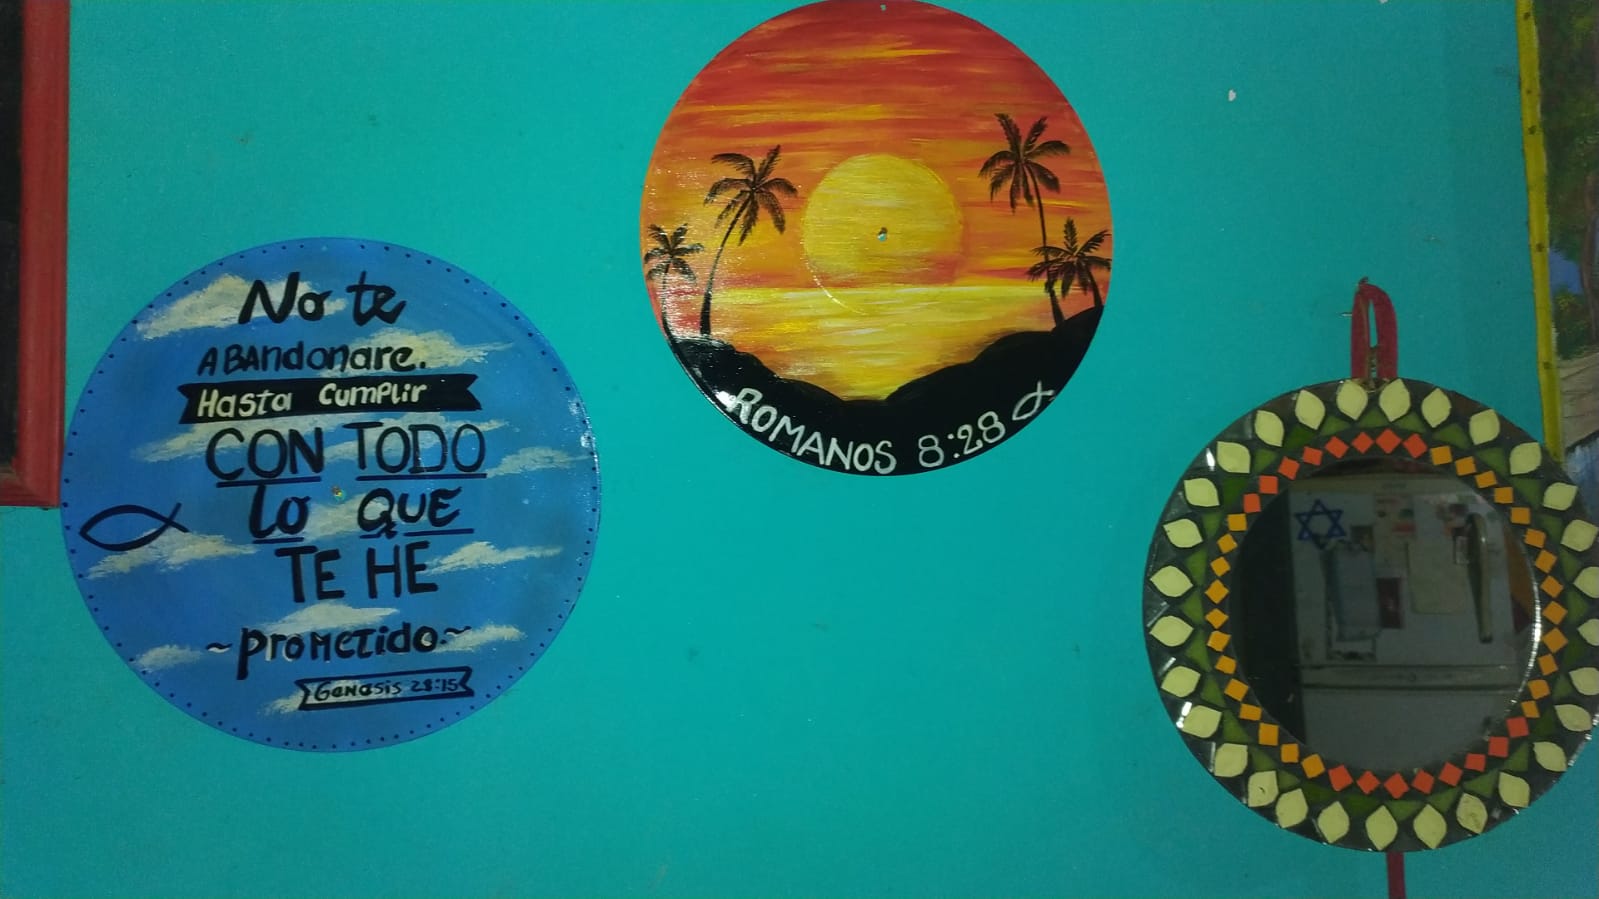 No te
ABAndonare.
Hasta Cumplir
CON TODO
lo QUE
TE HE
~prometido.~
Genesis 28:15
ROMANOS 8:28